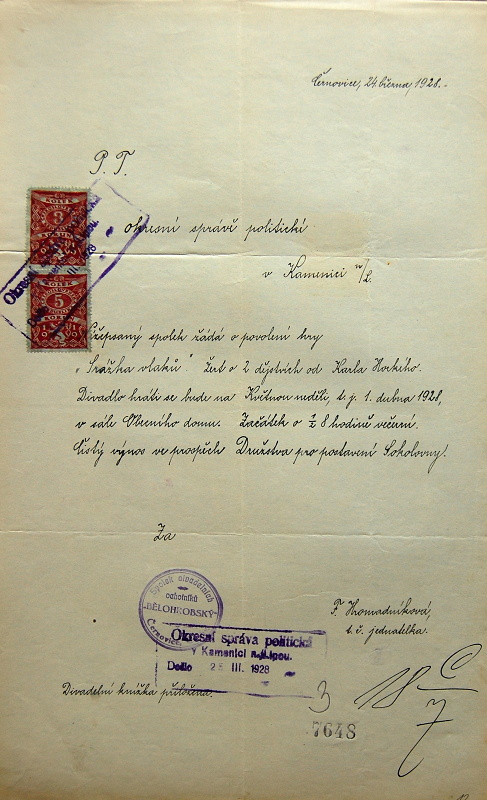 Černovice, 24. března, 1928.-
P. T.
KOLEK
3
KOLEK
5
Okresní správa politická
III. 1928
okresní správě politické
v Kamenici n/L.
Nížepsaný spolek žádá o povolení hry
„Srážka vlaků". Žert o 2 dějstvích od Karla Horkého.
Divadlo hráti se bude na Květnou neděli, t. j. 1. dubna 1928,
v sále Obecního domu. Začátek o ½ 8 hodině večerní.
Čistý výnos ve prospěch Družstva pro postavení Sokolovny!
Za
Spolek divadelních
ochotníků
"BĚLOHROBSKÝ"
Černovice.
F. Hromadníková,
t. č. jednatelka.
Okresní správa politická
v Kamenici n. Lipou.
Došlo 28 III. 1928
Divadelní knížka přiložena.
3
7648
18 C
7